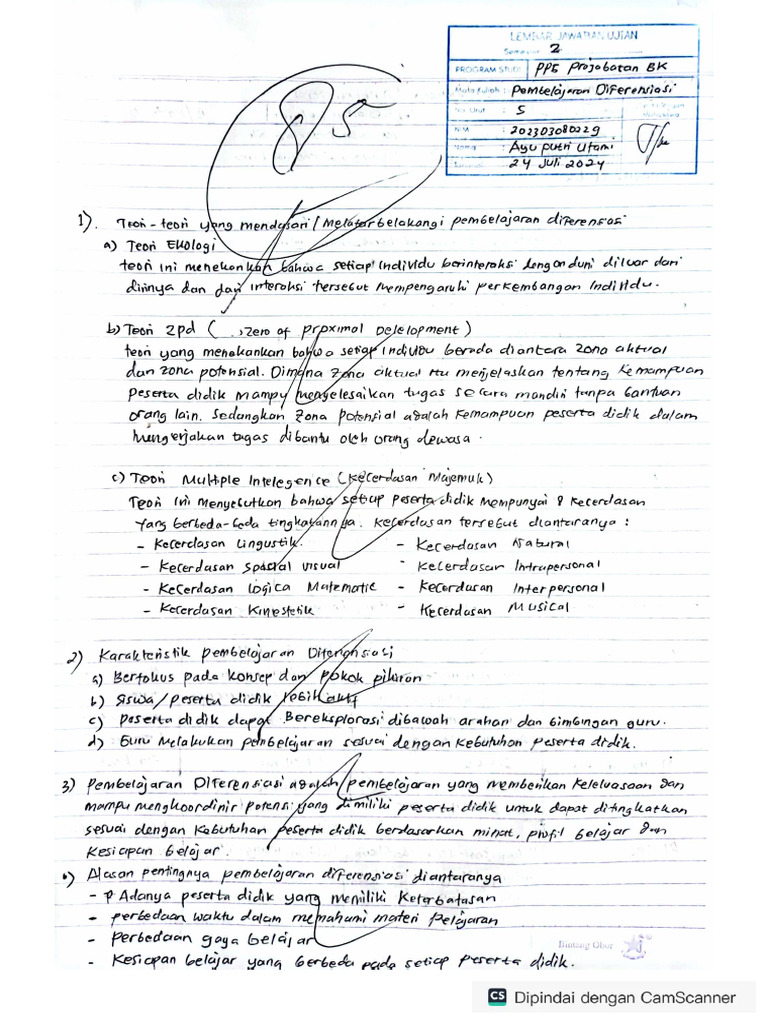 LEMBAR JAWABAN UJIAN
Semester 2
PROGRAM STUDI : PPG Prajabatan BK
Mata Kuliah : Pembelajaran Diferensiasi
No. Urut : 5
NIM : 202303080229
Nama : Ayu putri Utami
24 Juli 2024
85
1). Teori-teori yang mendasari/Melatarbelakangi pembelajaran diferensiasi
a) Teori Ekologi
teori ini menekankan bahwa setiap individu berinteraksi dengan dunia diluar dari
dirinya dan dari interaksi tersebut mempengaruhi perkembangan individu.
b) Teori Zpd ( , zero of proximal Development)
teori yang menekankan bahwa setiap individu berada diantara zona aktual
dan zona potensial. Dimana zona aktual itu menjelaskan tentang kemampuan
peserta didik mampu mengelesaikan tugas secara mandiri tanpa bantuan
orang lain. Sedangkan zona potensial adalah kemampuan peserta didik dalam
mengerjakan tugas dibantu oleh orang dewasa.
c) Teori Multiple Intelegence (kecerdasan Majemuk)
Teori ini menyebutkan bahwa setiap peserta didik mempunyai 8 kecerdasan
yang berbeda-beda tingkatannya. kecerdasan tersebut diantaranya :
- Kecerdasan Lingustik. - Kecerdasan Natural
- Kecerdasan spasial visual - Kecerdasan Intrapersonal
- Kecerdasan logica Matematic - Kecerdasan Interpersonal
- Kecerdasan Kinestetik - Kecerdasan Musical
2) Karakteristik pembelajaran Diferensiasi
a) Berfokus pada konsep dan pokok pikiran
b) Siswa/peserta didik lebih aktif
c) peserta didik dapat Bereksplorasi dibawah arahan dan bimbingan guru.
d) Guru Melakukan pembelajaran sesuai dengan kebutuhan peserta didik.
3) Pembelajaran Diferensiasi adalah pembelajaran yang memberikan keleluasaan dan
mampu mengkoordinir potensi yang dimiliki peserta didik untuk dapat ditingkatkan
sesuai dengan kebutuhan peserta didik berdasarkan minat, profil belajar dan
kesiapan belajar.
•) Alasan pentingnya pembelajaran diferensiasi diantaranya
- Adanya peserta didik yang memiliki keterbatasan
- perbedaan waktu dalam memahami materi pelajaran
- perbedaan gaya belajar
- kesiapan belajar yang berbeda pada setiap peserta didik.
Bintang Obor
CS Dipindai dengan CamScanner